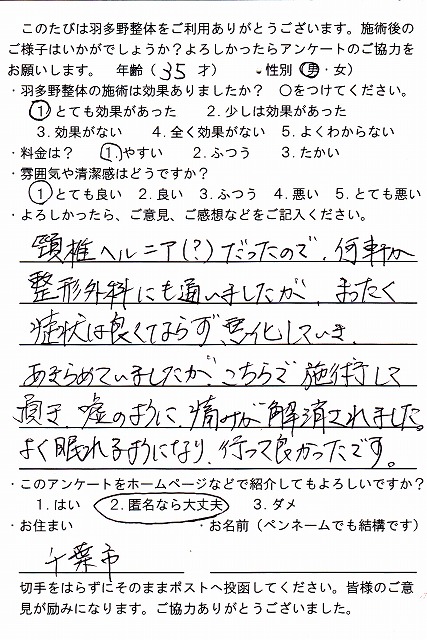 このたびは羽多野整体をご利用ありがとうございます。施術後の
ご様子はいかがでしょうか?よろしかったらアンケートのご協力を
お願いします。 年齢(35才) ・性別(男・女)
・羽多野整体の施術は効果ありましたか? ○をつけてください。
1とても効果があった 2.少しは効果があった
3.効果がない 4.全く効果がない 5.よくわからない
・料金は? 1.やすい 2.ふつう 3.たかい
・雰囲気や清潔感はどうですか?
1とても良い 2.良い 3.ふつう 4.悪い 5.とても悪い
・よろしかったら、ご意見、ご感想などをご記入ください。
頸椎ヘルニア(?)だったので、何軒か
整形外科にも通いましたが、まったく
症状は良くてならず、悪化していき
あきらめていましたが、こちらで施術して
頂き、嘘のように、痛みが解消されました。
よく眠れるようになり、行って良かったです。
・このアンケートをホームページなどで紹介してもよろしいですか?
1.はい 2.匿名なら大丈夫 3.ダメ
・お住まい ・お名前(ペンネームでも結構です)
千葉市
切手をはらずにそのままポストへ投函してください。皆様のご意
見が励みになります。ご協力ありがとうございました。